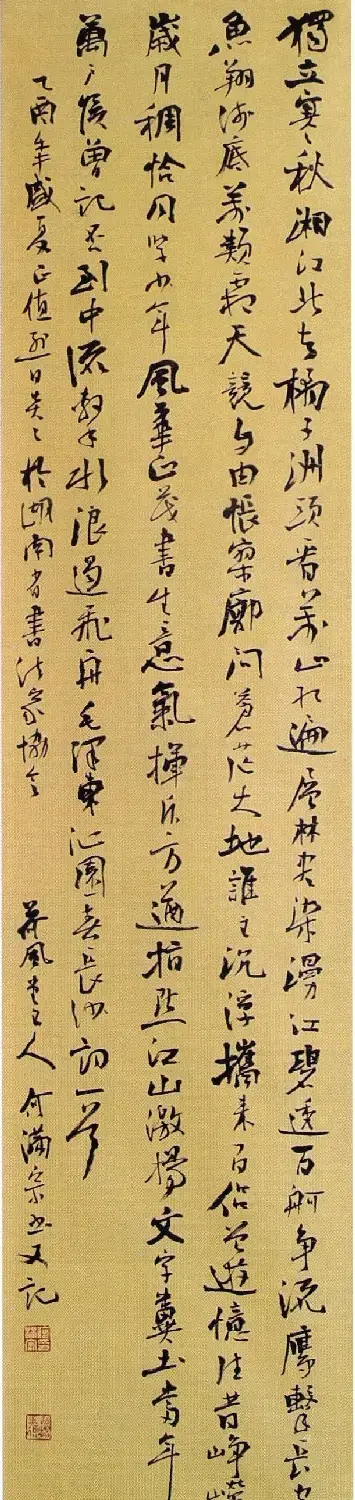 獨立寒秋湘江北去橘子洲頭看萬山红遍層林盡染漫江碧透百舸争流鷹擊長空
魚翔淺底萬類霜天競自由悵寥廓問蒼茫大地誰主沉浮攜來百侣曾遊憶往昔崢嶸
歲月稠恰同学少年風華正茂書生意氣揮斥方遒指點江山激揚文字糞土當年
萬户侯曾記否到中流擊水浪遏飛舟毛澤東沁園春長沙詞一首
乙酉年盛夏正值烈日炎炎於湖南省書法家協会 風堂主人何滿宗书又记